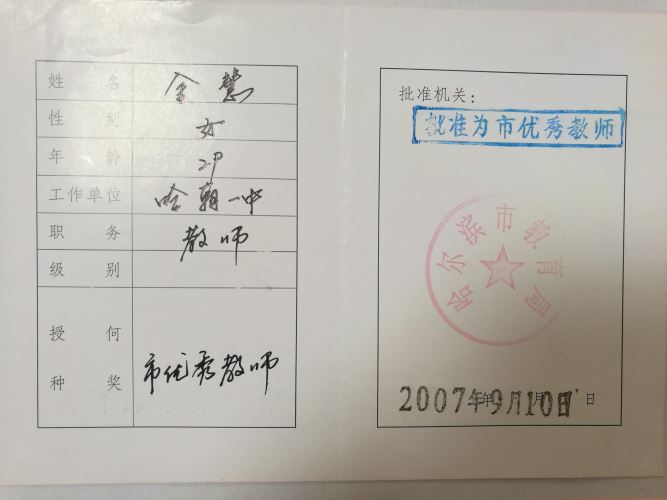 姓 名 金慧
性 别 女
年 龄 29
工作单位 哈朝一中
职 务 教师
级 别
授 何
种 奖
市优秀教师
批准机关：
批准为市优秀教师
哈尔滨市教育局
2007年9月10日